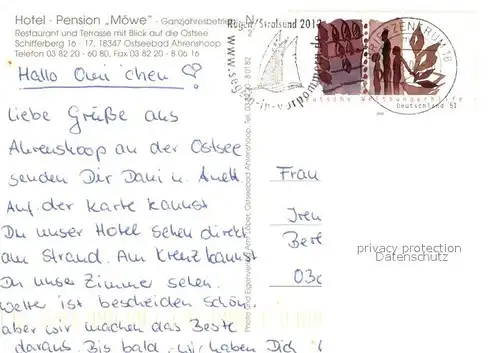 Hotel · Pension „Möwe" · Ganzjahresbetrieb
Restaurant und Terrasse mit Blick auf die Ostsee
Schifferberg 16 - 17, 18347 Ostseebad Ahrenshoop
Telefon 03 82 20 - 60 80, Fax 03 82 20 - 8 06 16
Hallo Omi'chen ♡
Liebe Grüße aus
Ahrenshoop an der Ostsee
senden Dir Dani u. Anett
Auf der Karte kannst
Du unser Hotel sehen direkt
am Strand. Am Kreuz kannst
Du unser Zimmer sehen.
Wetter ist bescheiden schön,
aber wir machen das Beste
daraus. Bis bald, wir haben Dich
Rügen/Stralsund
ZENTRUM 18
Deutsche Welthungerhilfe
Deutschland 51
Ostseebad Ahrenshoop, Tel.
Frau
Iren
030
privacy protection
Datenschutz